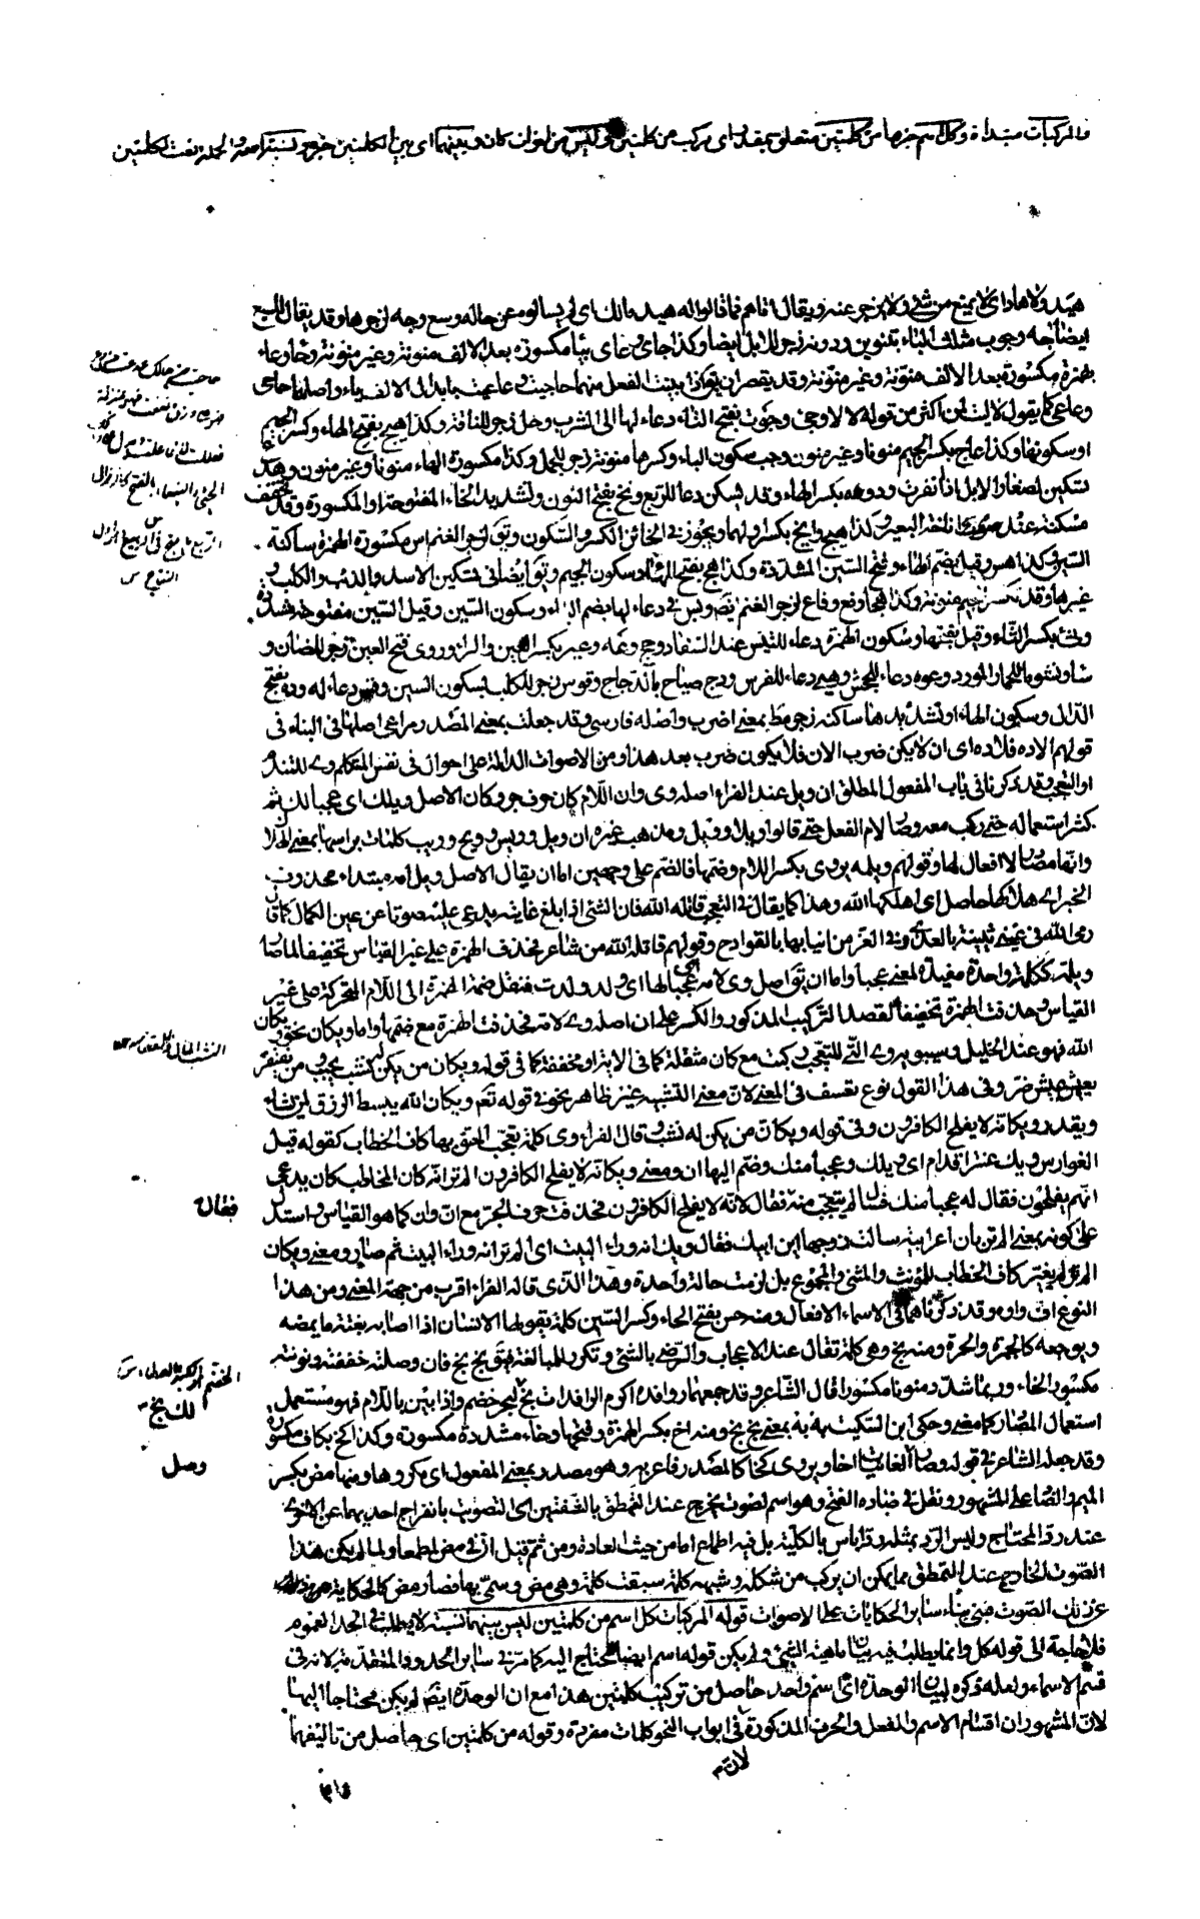 والمركبات مبتداة وكل اسم خبرها من كلمتين متعلق بمقدر اى مركب من كلمتين وليس من اخوات كان وبينهما اى بين الكلمتين خبره ونسبة اسمه والجملة نعت لكلمتين
هيد ولا هاد اى لا يمنع من شئ ولا يزجر عنه ويقال اتاهم فما قالوا له هيد مالك اى لم يسألوه عن حاله وسع وجه لزجرها وقد يقال للسبع
ايضا جه وجوب مثلث الباء بتنوين ودونه زجر للابل ايضا وكذا جاى وعاى بياء مكسورة بعد الالف منونة وغير منونة وحاء وعاء
بهمزة مكسورة بعد الالف منونة وغير منونة وقد يقصران فاذا بنيت الفعل منهما حاجيت وعاعيت بابدال الالف ياء واصلها حاى
وعاعى كما يقول لاليت لمن اكثر من قوله لا لا وجئ وجوت بفتح التاء دعاء لها الى الشرب وحل زجر للناقة وكذا هيج بفتح الهاء وكسر الجيم
او سكونها وكذا عاج بكسر الجيم منونا وغير منون وحب سكون الباء وكسرها منونة زجر للجمل وكذا مكسورة الهاء منونا وغير منون وهدع
تسكين لصغار الابل اذا نفرت ودوه بكسر الهاء وقد يسكن دعا للربع ونخ بفتح النون وتشديد الخاء المفتوحة او المكسورة وقد تخفف
مسكنة عند صوت اناخة البعير وكذا هيخ وايخ بكسر اولهما ويجوز فى الخائن الكسر والسكون وبق لزجر الغنم اس مكسورة الهمزة ساكنة
السين وكذا هس وقيل بضم الهاء وفتح السين المشددة وكذا هج بفتح الهاء وسكون الجيم وتق ايضا فى تسكين الاسد والذئب والكلب و
غيرها وقد تكسر الجيم منونة وكذا هجا وفع وفاع لزجر الغنم وبس فى دعاء لها بضم الباء وسكون السين وقيل السين مفتوحة مشددة
وثئ بكسر الثاء وقيل بفتحها وسكون الهمزة دعاء للتيس عند السفاد وحج وعه وعيز بكسر العين والزاء وروى فتح العين زجر للضأن و
شأ وتشوء للحمار المورد وعوه دعاء للجحش وهبى دعاء للفرس ودج صياح بالدجاج وقوس زجر للكلب بسكون السين وقس دعاء له وده بفتح
الدال وسكون الهاء او تشديدها ساكنة زجر مط بمعنى اضرب واصله فارسى وقد جعلت بمعنى المصدر مراعى اصلها فى البناء فى
قولهم الاده فلاده اى ان لا يكن ضرب الان فلا يكون ضرب بعد هذا ومن الاصوات الدالة على احوال فى نفس المتكلم وى للتندم
او التعجب وقد ذكرنا فى باب المفعول المطلق ان ويل عند الفراء اصله وى وان اللام كان حرف جر وكان الاصل ويلك اى عجبا لك ثم
كثر استعماله حتى ركب معه وصار لام الفعل حتى قالوا ويلا وويل ومذهب غيره ان ويل وويس وويح وويب كلمات براسها بمعنى الهلاك
وانها مصادر لا افعال لها وقولهم ويلمه يروى بكسر اللام وضمها فالضم على وجهين اما ان يقال الاصل ويل امه مبتداء محذوف
الخبر اى هلاكها حاصل اى اهلكها الله وهذا كما يقال فى التعجب قاتله الله فان الشئ اذا بلغ غايته يدعى عليه صونا عن عين الكمال كما قال
رمى الله فى عينى بثينة بالقذى وفى الغر من انيابها بالقوادح وقولهم قاتله الله من شاعر فحذف الهمزة على غير القياس تخفيفا لما صار
ويلمه ككلمة واحدة مفيدة لمعنى عجبا واما ان يق اصل وى لامه اى عجبا لها اى ولد ولدت فنقل ضمة الهمزة الى اللام المتحركة على غير
القياس وحذفت الهمزة تخفيفا لقصد التركيب المذكور والكسر على ان اصله وى لامه فحذفت الهمزة مع ضمتها واما ويكان نحو ويكان
الله فهو عند الخليل وسيبويه وى التى للتعجب ركبت مع كان مثقلة كما فى الاية او مخففة كما فى قوله ويكان من يكن له نشب يحبب ومن يفتقر
يعش عيش ضر وفى هذا القول نوع تعسف فى المعنى لان معنى التشبيه غير ظاهر نحو فى قوله تعم ويكان الله يبسط الرزق لمن يشاء
ويقدر ويكانه لا يفلح الكافرون وفى قوله ويكان من يكن له نشب وقال الفراء وى كلمة تعجب الحق بها كاف الخطاب كقوله قيل
الفوارس ويك عنتر اقدام اى ويلك وعجبا منك وضم اليها ان ومعنى ويكانه لا يفلح الكافرون الم تر انه كان المخاطب كان يدعى
انهم يفلحون فقال له عجبا منك فسال لم يتعجب منه فقال لانه لا يفلح الكافرون فحذف حرف الجر مع ان وان كما هو القياس واستدل
على كونه بمعنى الم تر بان اعرابية سالت زوجها اين ابنك فقال ويك انه وراء البيت اى الم تر انه وراء البيت ثم صار ومعنى ويكان
الم تر لم يغير كاف الخطاب للمؤنث والمثنى والمجموع بل لزمت حالة واحدة وهذا الذى قاله الفراء اقرب من جهة المعنى ومن هذا
النوع اف واوه وقد ذكرناهما فى الاسماء الافعال ومنه حس بفتح الحاء وكسر السين كلمة يقولها الانسان اذا اصابه بغتة ما يمضه
ويوجعه كالجمرة والحرة ومنه بخ وهى كلمة تقال عند الاعجاب والرضى بالشئ وتكرر للمبالغة فيق بخ بخ فان وصلته خففته ونونته
مكسور الخاء وربما شدد منونا مكسورا قال الشاعر وقد جمعهما روافده اكرم الرافدات بخ لبحر خضم واذا بين باللام فهو مستعمل
استعمال المصادر كما مضى وحكى ابن السكيت به به بمعنى بخ بخ ومنه اخ بكسر الهمزة وفتحها وخاء مشددة مكسورة وكذا كخ بكاف مكسورة
وقد جعله الشاعر فى قوله وصار الغانيات اخا ويروى كخا كالمصدر فاعربه وهو مصدر بمعنى المفعول اى مكروها ومنها مض بكسر
الميم والضاد على المشهور ونقل فى ضاده الفتح وهو اسم لصوت يخرج عند التمطق بالشفتين اى التصويت بانفراج احديهما عن الاخرى
عند رد المحتاج وليس الرد بمثله رد اياس بالكلية بل فيه اطماع اما من حيث العادة ومن ثم قيل ان فى مض لطمعا ولما لم يكن هذا
الصوت الخارج عند التمطق مما يمكن ان يركب من شكله وشبهه كلمة سبقت كلمة وهى مض وسمى بها فصار مض كالحكاية
عن ذلك الصوت فبنى بناء ساير الحكايات عن الاصوات قوله المركبات كل اسم من كلمتين ليس بينهما نسبة لا يطلب فى الحد العموم
فلا حاجة الى قوله كل وانما يطلب فيه بيان ماهية الشئ ولم يكن قوله اسم ايضا محتاج اليه كما مر فى ساير الحدود المتقدمة لانه فى
قسم الاسماء ولعله ذكره لبيان الوحدة اى اسم واحد حاصل من تركيب كلمتين هذا مع ان الوحدة ايضا لم يكن محتاجا اليها
لان المشهور ان اقسام الاسم والفعل والحرف المذكورة فى ابواب النحو كلمات مفردة وقوله من كلمتين اى حاصل من تاليفهما
فقال
لك بخ
وصل